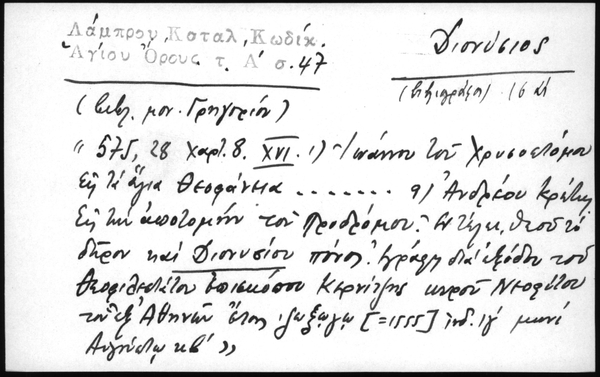 Λάμπρου Καταλ. Κωδίκ.
Ἁγίου Ὄρους τ. Α' σ. 47
Διονύσιος
(βιβλιογράφος) 16 αἰ
(βιβλ. μον. Γρηγορίου)
" 575, 28 Χαρτ. 8. XVI. 1) Ἰωάννου τοῦ Χρυσοστόμου
Εἰς τὰ ἅγια Θεοφάνεια . . . . . . . 9) Ἀνδρέου Κρήτης
Εἰς τὴν ἀποτομὴν τοῦ Προδρόμου. Ἐν τέλει, Θεοῦ τὸ
δῶρον καὶ Διονυσίου πόνος. Ἐγράφη διὰ ἐξόδου τοῦ
Θεοφιλεστάτου Ἐπισκόπου Κερνίτζης κυροῦ Νεοφύτου
τοῦ ἐξ Ἀθηνῶν ἔτους ͵ζωξωγω [=1555] ἰνδ. ιγ' μηνὶ
Αὐγούστῳ κβ' "